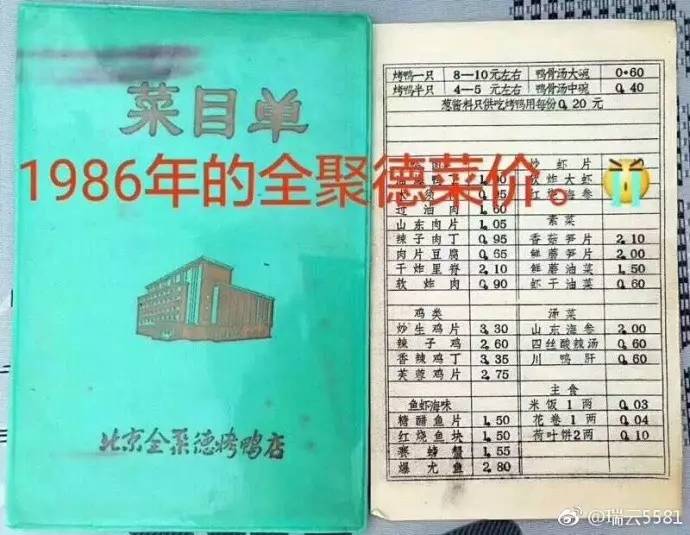 菜目单
1986年的全聚德菜价。
北京全聚德烤鸭店
烤鸭一只 8—10元左右 鸭骨汤大碗 0.60
烤鸭半只 4—5元左右 鸭骨汤中碗 0.40
葱酱料只供吃烤鸭用每份0.20元
炒虾片
软炸大虾
过油肉 1.60
山东肉片 1.05 素菜
辣子肉丁 0.95 香菇笋片 2.10
肉片豆腐 0.65 鲜蘑笋片 2.00
干炸里脊 2.10 鲜蘑油菜 1.50
软炸肉 0.90 虾干油菜 0.60
鸡类 汤菜
炒生鸡片 3.30 山东海参 2.00
辣子鸡 2.60 四丝酸辣汤 0.60
香辣鸡丁 3.35 川鸭肝 0.60
芙蓉鸡片 2.75
主食
鱼虾海味 米饭1两 0.03
糖醋鱼片 1.50 花卷1两 0.04
红烧鱼块 1.50 荷叶饼2两 0.10
赛螃蟹 1.55
爆尤鱼 2.80
@瑞云5581